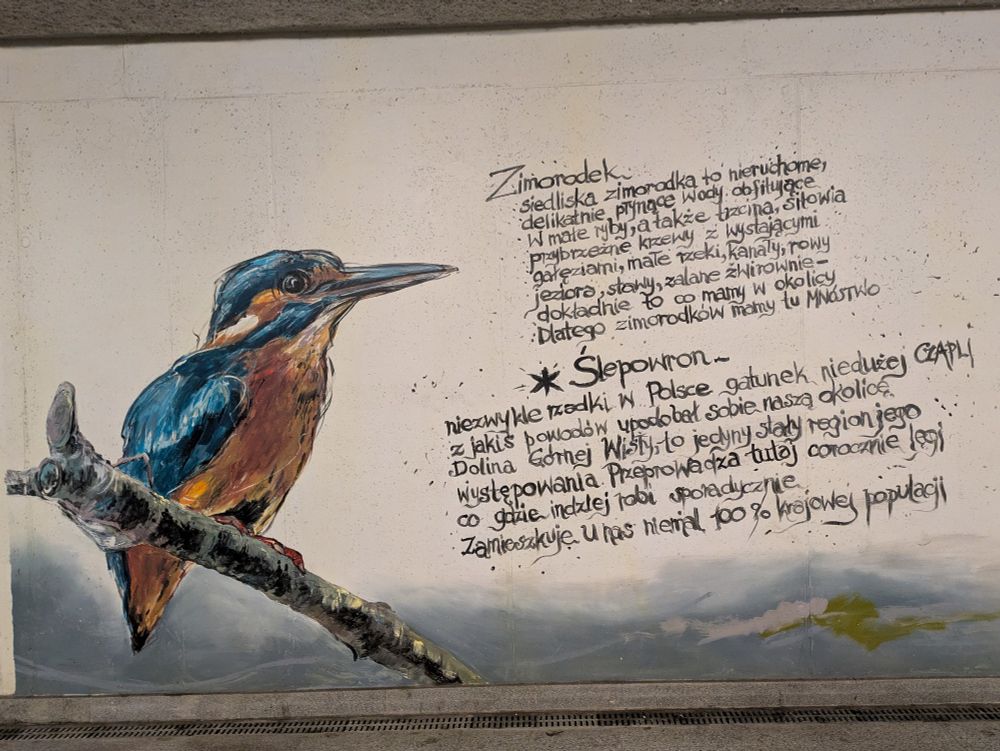 Zimorodek
siedliska zimorodka to nieruchome,
delikatnie płynące wody obfitujące
w małe ryby, a także trzcina, sitowia
przybrzeżne krzewy z wystającymi
gałęziami, małe rzeki, kanały, rowy
jeziora, stawy, zalane żwirownie -
dokładnie to co mamy w okolicy
Dlatego zimorodków mamy tu MNÓSTWO
* Ślepowron -
niezwykle rzadki w Polsce gatunek niedużej CZAPLI
z jakiś powodów upodobał sobie naszą okolicę
Dolina Górnej Wisły, to jedyny stały region jego
występowania. Przeprowadza tutaj corocznie lęgi
co gdzie indziej robi sporadycznie
Zamieszkuje u nas niemal 100% krajowej populacji